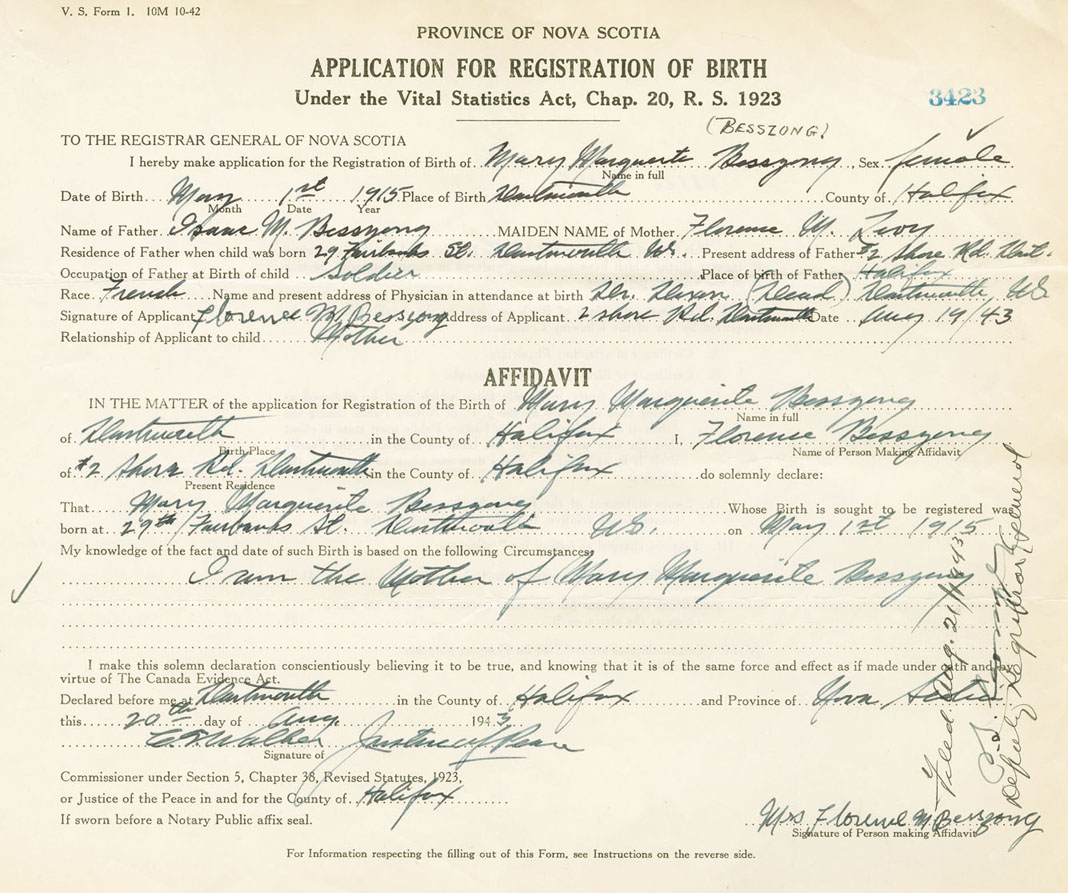 V. S. Form 1. 10M 10-42
PROVINCE OF NOVA SCOTIA
APPLICATION FOR REGISTRATION OF BIRTH
Under the Vital Statistics Act, Chap. 20, R. S. 1923
3423
(BESSZONG)
TO THE REGISTRAR GENERAL OF NOVA SCOTIA
I hereby make application for the Registration of Birth of Mary Marguerite Besszong, Sex female
Name in full
Date of Birth May 1st 1915 Place of Birth Dartmouth County of Halifax
Month Date Year
Name of Father Isaac M. Besszong MAIDEN NAME of Mother Florence M. Levy
Residence of Father when child was born 29 Fairbanks St. Dartmouth N.S. Present address of Father #2 Shore Rd. Dart.
Occupation of Father at Birth of child Soldier Place of birth of Father Halifax
Race French Name and present address of Physician in attendance at birth Dr. (Dead) Dartmouth, N.S.
Signature of Applicant Florence M Besszong Address of Applicant 2 shore Rd. Dartmouth Date Aug 19/43
Relationship of Applicant to child Mother
AFFIDAVIT
IN THE MATTER of the application for Registration of the Birth of Mary Marguerite Besszong
Name in full
of Dartmouth in the County of Halifax I, Florence Besszong
Birth Place Name of Person Making Affidavit
of #2 Shore Rd. Dartmouth in the County of Halifax do solemnly declare:
Present Residence
That Mary Marguerite Besszong Whose Birth is sought to be registered was
born at 29th Fairbanks St. Dartmouth N.S. on May 1st 1915
My knowledge of the fact and date of such Birth is based on the following Circumstances:
I am the Mother of Mary Marguerite Besszong
I make this solemn declaration conscientiously believing it to be true, and knowing that it is of the same force and effect as if made under oath and by
virtue of The Canada Evidence Act.
Declared before me at Dartmouth in the County of Halifax and Province of Nova Scotia
this 20th day of Aug. 1943
Walker Justice of Peace
Signature of
Commissioner under Section 5, Chapter 38, Revised Statutes, 1923,
or Justice of the Peace in and for the County of Halifax
If sworn before a Notary Public affix seal.
Mrs Florence M Besszong
Signature of Person making Affidavit
For Information respecting the filling out of this Form, see Instructions on the reverse side.
Filed Aug. 21/1943
Deputy Registrar General